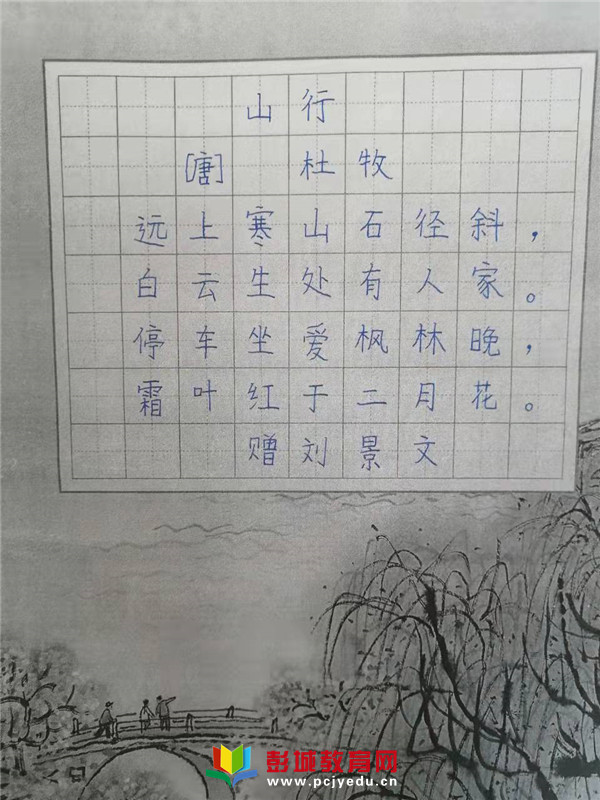 山行
[唐] 杜牧
远上寒山石径斜，
白云生处有人家。
停车坐爱枫林晚，
霜叶红于二月花。
赠刘景文
彭城教育网
www.pcjyedu.cn